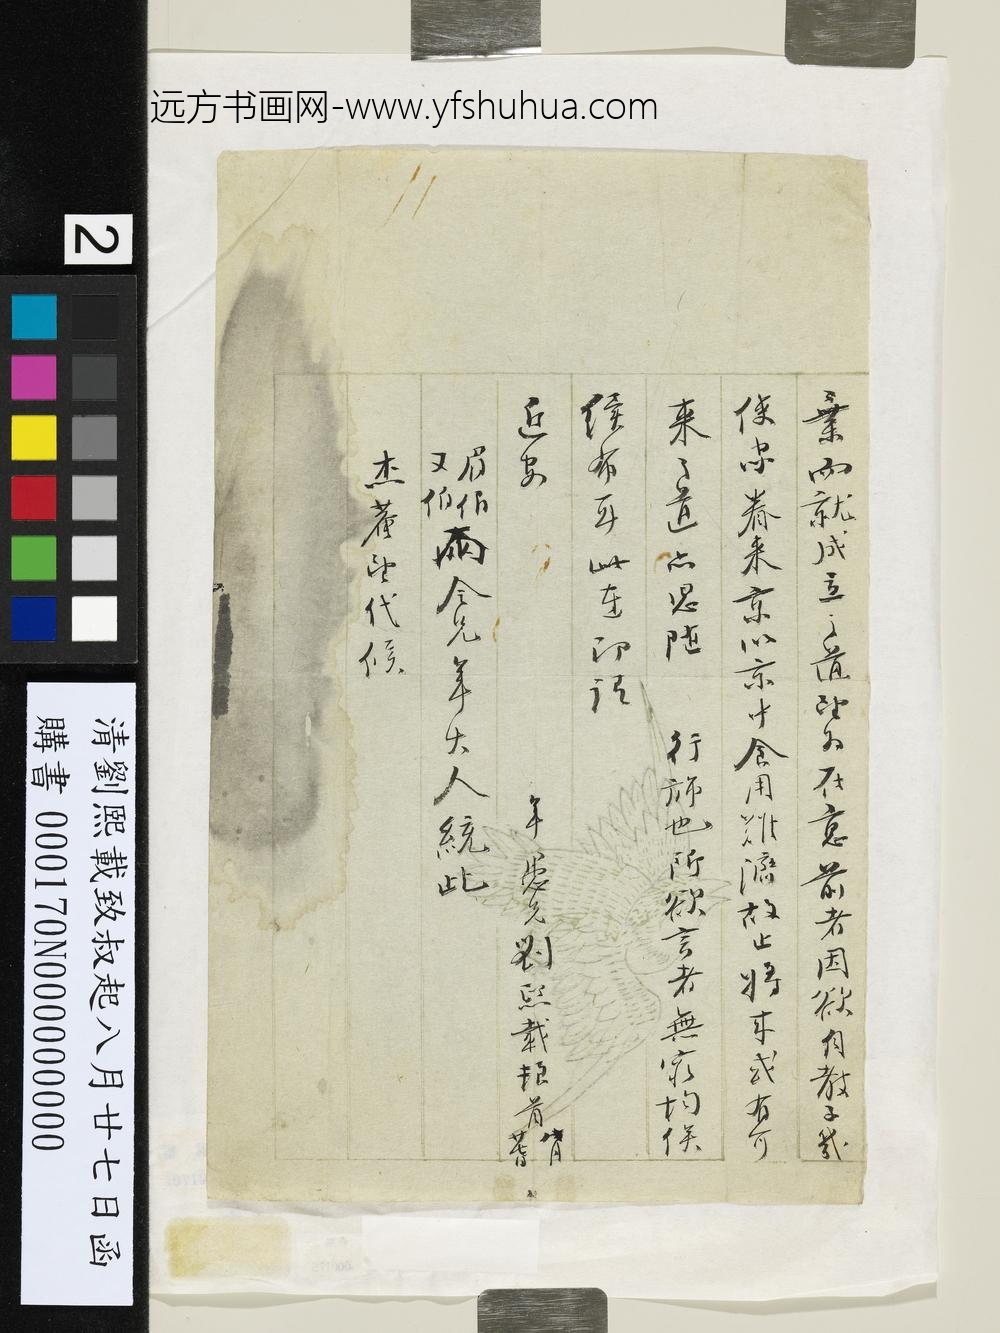 远方书画网-www.yfshuhua.com
2
業而就成立之道望為在意前者因欲自教子
使家眷来京以京中食用難濟故止將来或有可
来之道亦思随 行旆也所欲言者無窮均俟
續布耳此達即請
近安
年愚兄劉熙載頓首
眉伯
又伯
兩令兄年大人統此
杰菴望代候
清劉熙載致叔起八月廿七日函
購書 000170N000000000